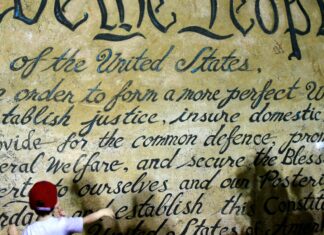 We the People
of the United States,
order to form a more perfect
establish justice, insure domestic
provide for the common defence,
eral Welfare, and secure the Bless
to ourselves and our Posteri
establish this Constitu
States of America